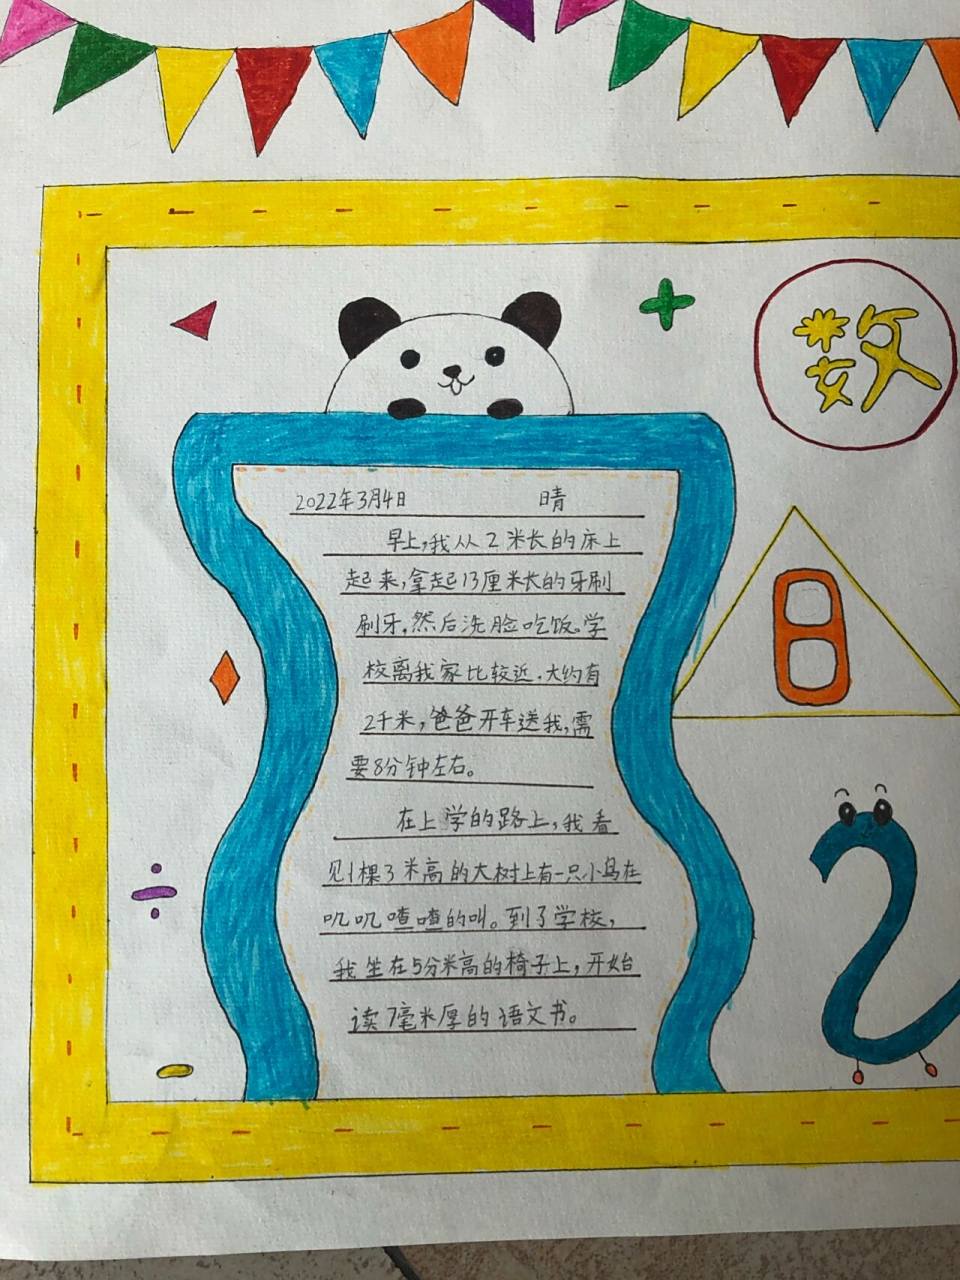 数
2022年3月4日 晴
早上,我从2米长的床上
起来,拿起13厘米长的牙刷
刷牙,然后洗脸吃饭。学
校离我家比较近.大约有
2千米,爸爸开车送我,需
要8分钟左右。
在上学的路上,我看
见1棵3米高的大树上有一只小鸟在
叽叽喳喳的叫。到了学校,
我坐在5分米高的椅子上,开始
读7毫米厚的语文书。
日